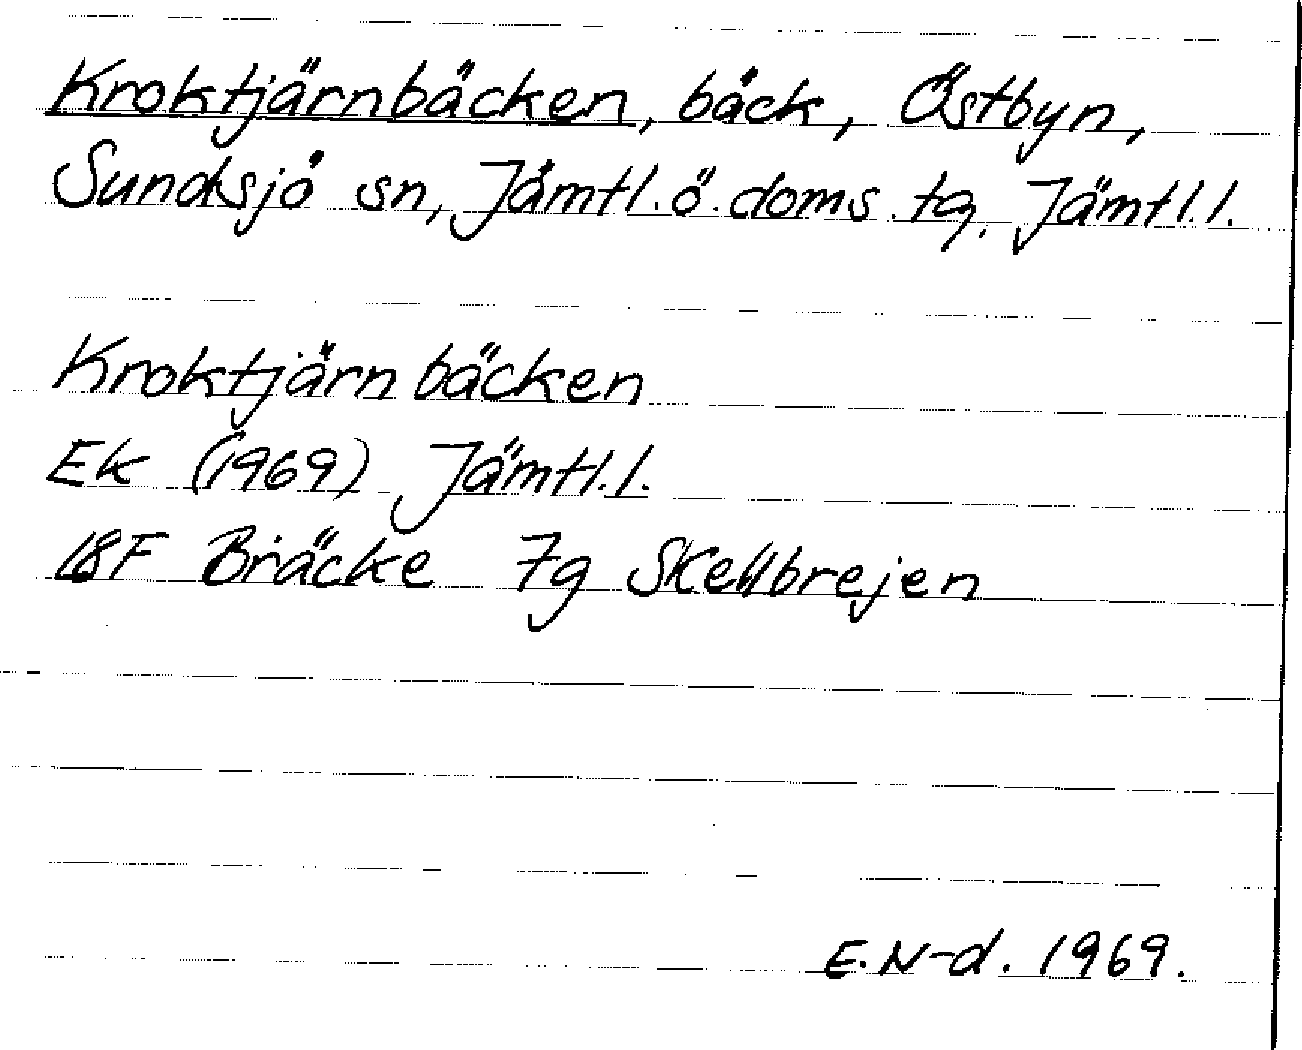 Kroktjärnbäcken, bäck, Östbyn,
Sundsjö sn, Jämtl. ö. doms. tg, Jämtl. l.
Kroktjärnbäcken
Ek (1969) Jämtl. l.
18F Bräcke 7g Skellbrejen
E. N-d. 1969.